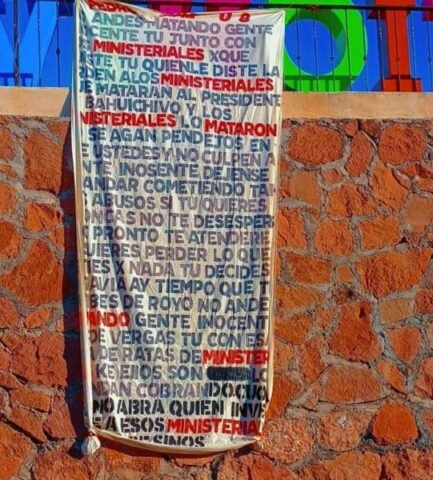 ANDES MATANDO GENTE
CENTE TU JUNTO CON
MINISTERIALES XQUE
STE TU QUIEN LE DISTE LA
RDEN ALOS MINISTERIALES
E MATARAN AL PRESIDENT
BAHUICHIVO Y LOS
NISTERIALES LO MATARON
SE AGAN PENDEJOS EN
USTEDES Y NO CULPEN A
NTE INOSENTE DEJENSE
ANDAR COMETIENDO TA
ABUSOS SI TU QUIERES
ONCAS NO TE DESESPER
PRONTO TE ATENDERE
UIERES PERDER LO QUE
TES X NADA TU DECIDES
AVIA AY TIEMPO QUE T
BES DE ROYO NO ANDE
ANDO GENTE INOCENT
DE VERGAS TU CON ES
DE RATAS DE MINISTER
KEJIOS SON LO
DAN COBRANDO CUO
DIO ABRA QUIEN INVE
A ESOS MINISTERIA
ESINOS